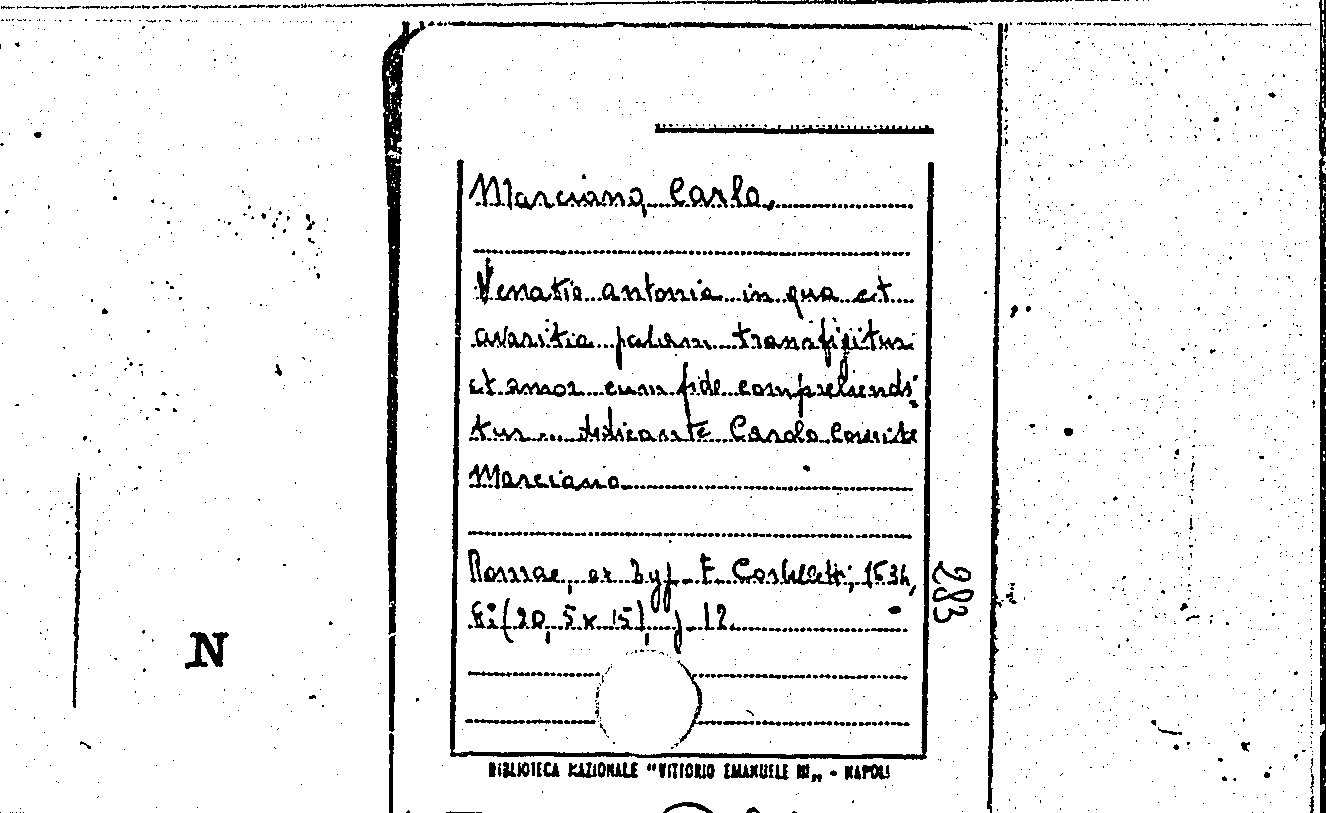 Marciano, Carlo.
Venatio antonia in qua et
avaritia palam transfigitur
et amor cum fide comprehendi-
tur ... dedicante Carolo Comite
Marciano
Romae, ex typ. F.
8:(20,5x15), p. 12.
283
N
BIBLIOTECA NAZIONALE "VITTORIO EMANUELE III„ - NAPOLI